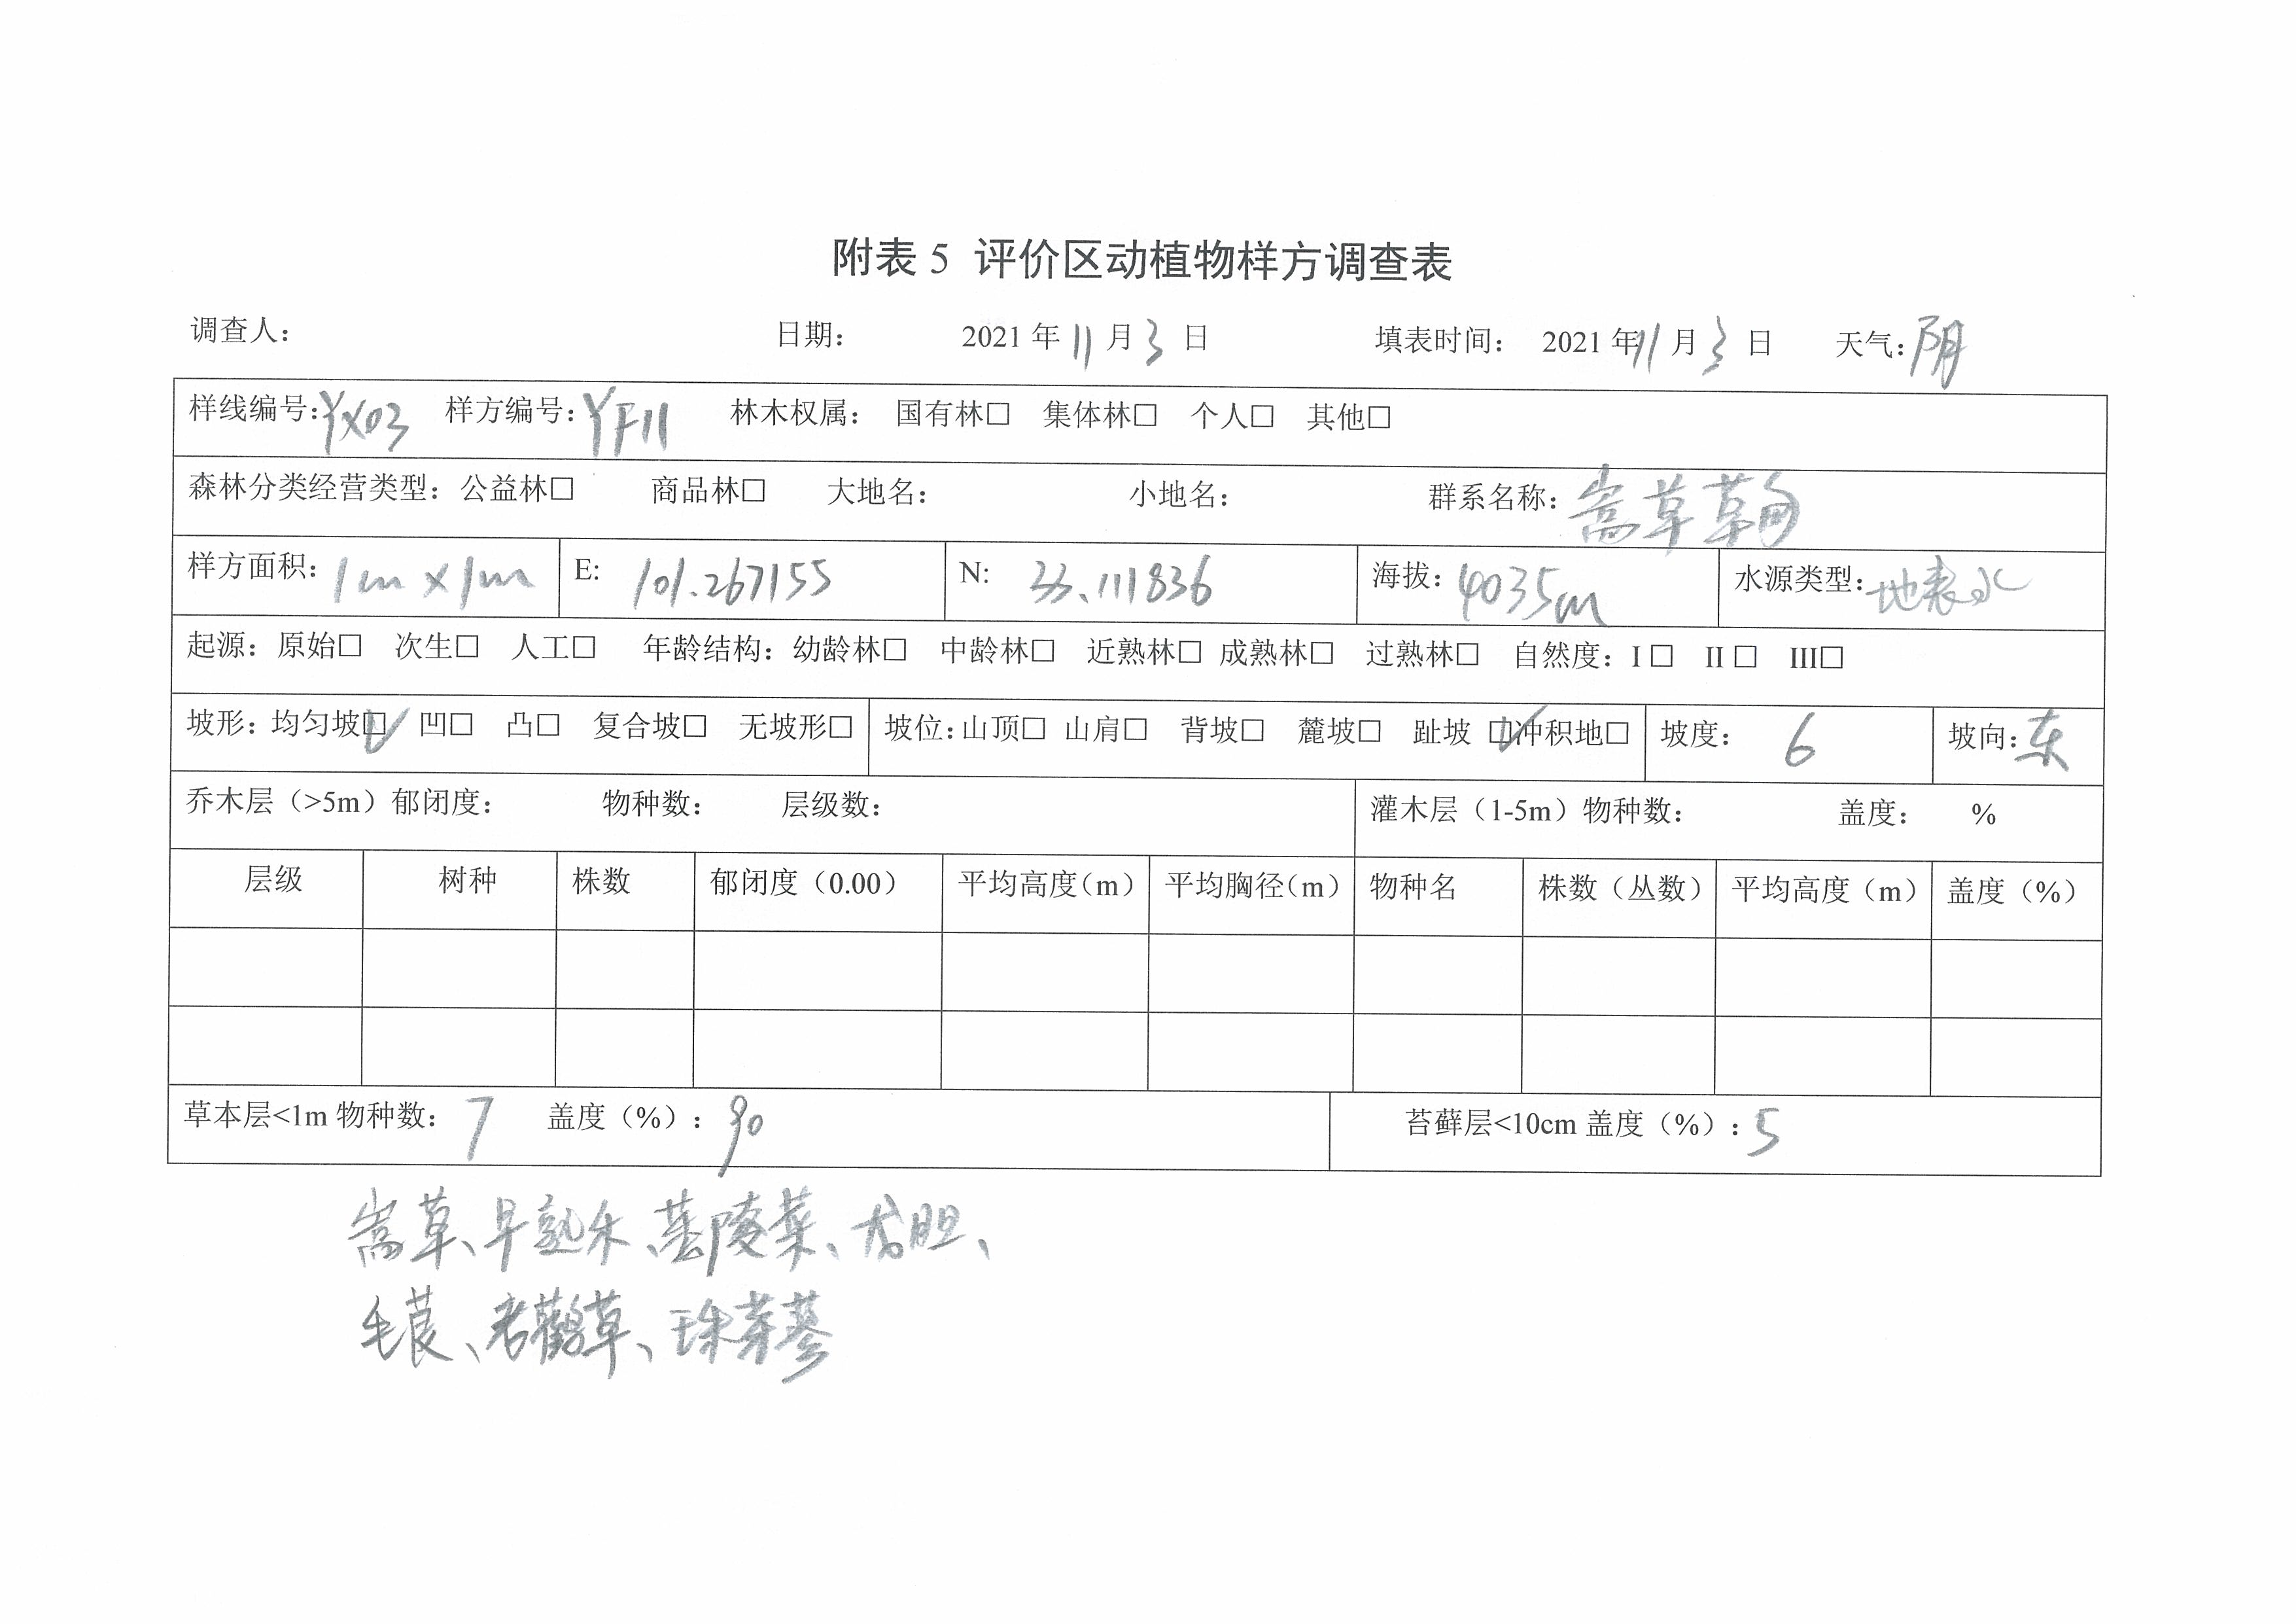 附表 5 评价区动植物样方调查表
调查人： 日期： 2021 年 11 月 3 日 填表时间： 2021 年 11 月 3 日 天气：阴
样线编号：YX03 样方编号：YF11 林木权属： 国有林□ 集体林□ 个人□ 其他□
森林分类经营类型：公益林□ 商品林□ 大地名： 小地名： 群系名称：嵩草草甸
样方面积：1m×1m E: 101.267155 N: 33.111836 海拔：4035m 水源类型：地表水
起源：原始□ 次生□ 人工□ 年龄结构：幼龄林□ 中龄林□ 近熟林□ 成熟林□ 过熟林□ 自然度：I □ II □ III□
坡形：均匀坡☑ 凹□ 凸□ 复合坡□ 无坡形□ 坡位：山顶□ 山肩□ 背坡□ 麓坡□ 趾坡 ☑冲积地□ 坡度：6 坡向：东
乔木层（>5m）郁闭度： 物种数： 层级数： 灌木层（1-5m）物种数： 盖度： %
层级 树种 株数 郁闭度（0.00） 平均高度（m） 平均胸径（m） 物种名 株数（丛数） 平均高度（m） 盖度（%）
草本层<1m 物种数：7 盖度（%）：90 苔藓层<10cm 盖度（%）：5
嵩草、早熟禾、委陵菜、龙胆、
毛茛、老鹳草、珠芽蓼